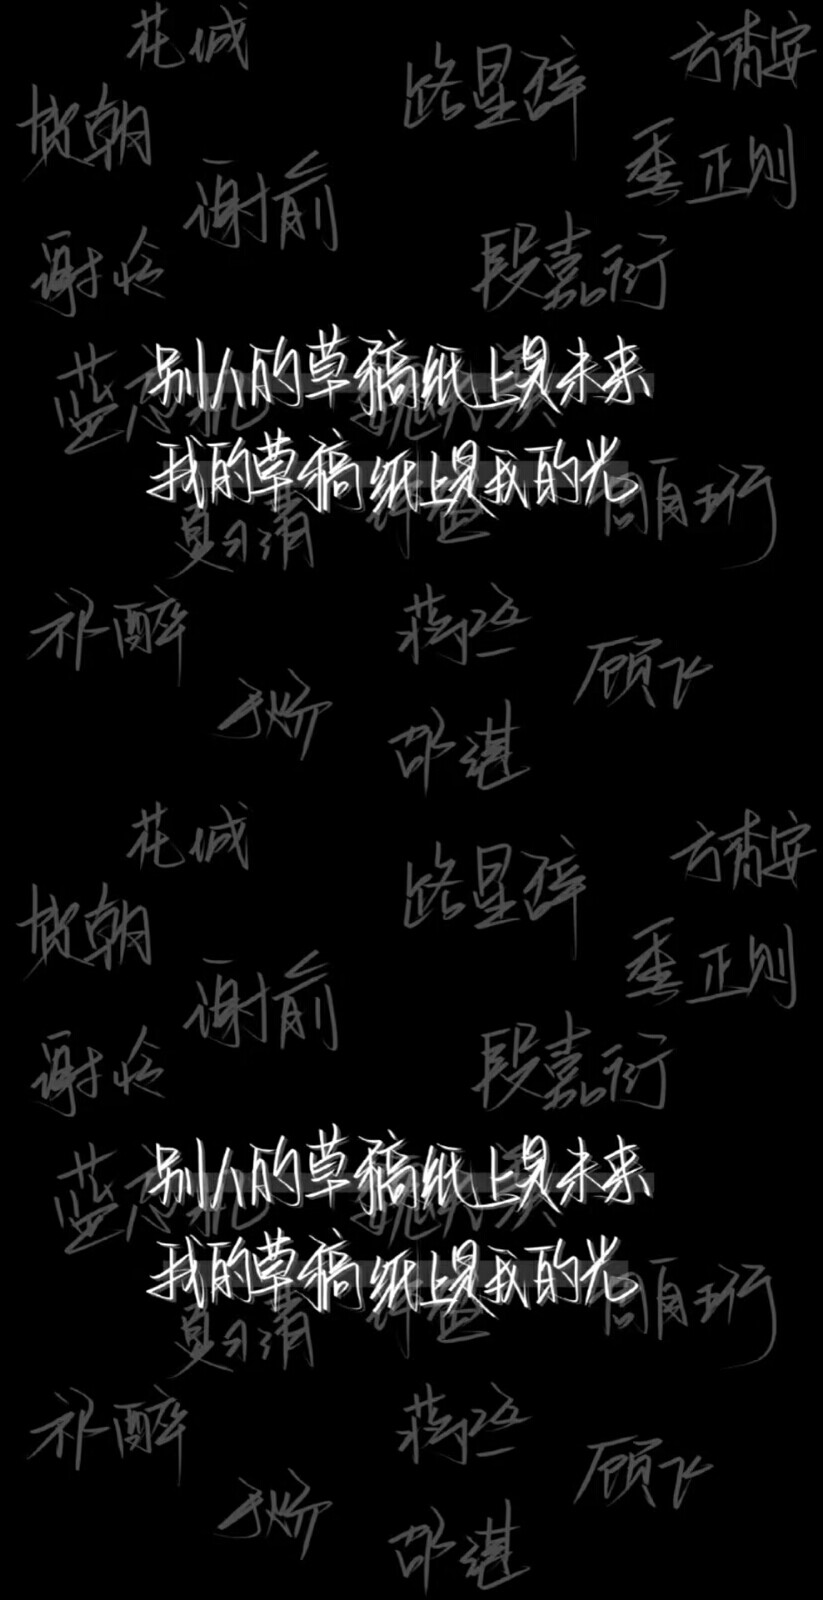 花城
路星辞
方青安
贺朝
季正则
谢前
谢怜
段嘉衍
别人的草稿纸上是未来
我的草稿纸上是我的光
夏习清
周自珩
祁醉
蒋丞
顾飞
于炀
邵湛
花城
路星辞
方青安
贺朝
季正则
谢前
谢怜
段嘉衍
别人的草稿纸上是未来
我的草稿纸上是我的光
夏习清
周自珩
祁醉
蒋丞
顾飞
于炀
邵湛